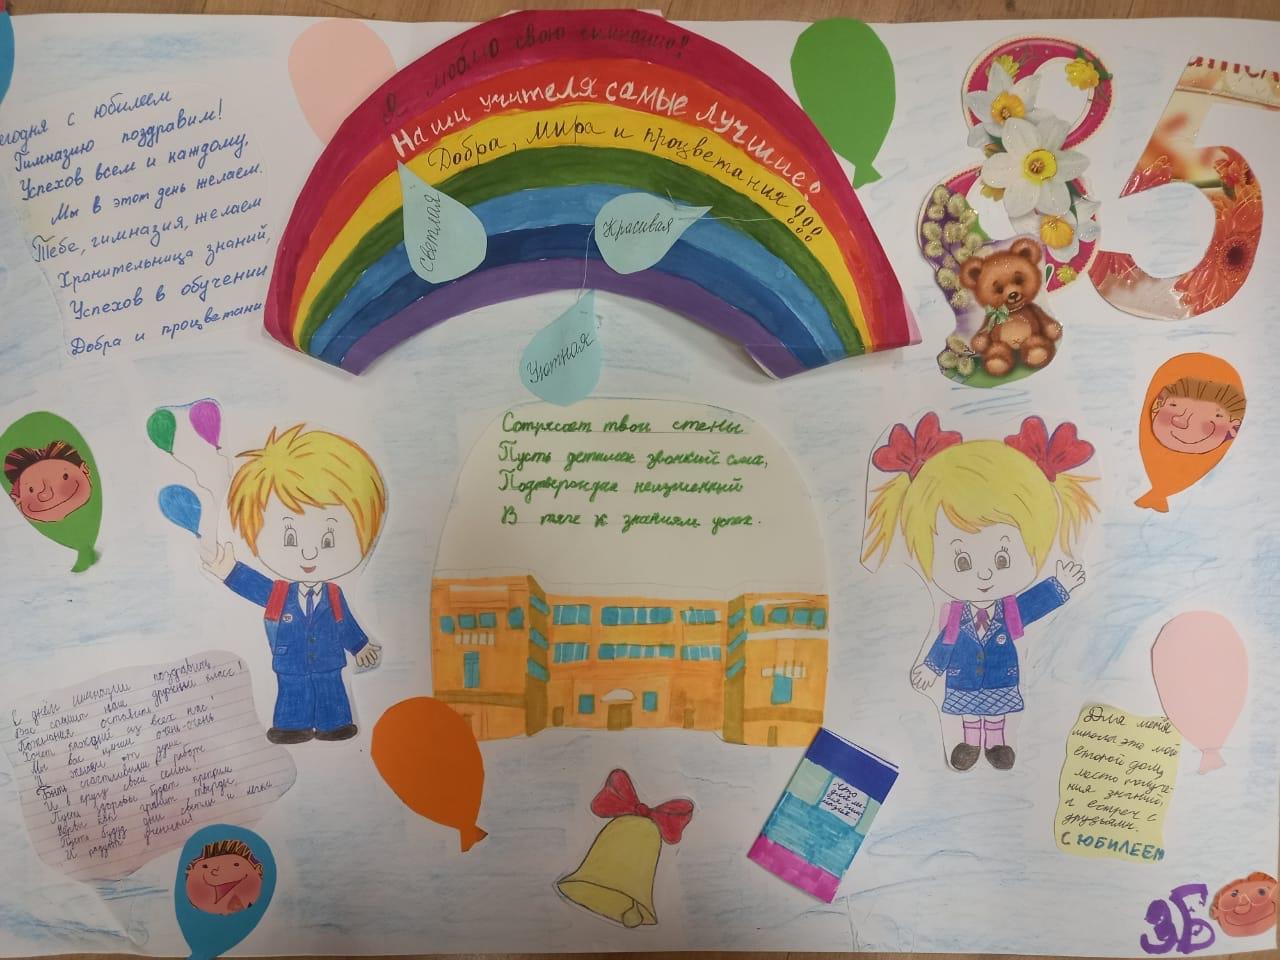 Я люблю свою гимназию!
Наши учителя самые лучшие!
Добра, мира и процветания!!!
Светлая
Красивая
Уютная
егодня с юбилеем
Гимназию поздравим!
Успехов всем и каждому,
Мы в этот день желаем.
Тебе, гимназия, желаем
Хранительница знаний,
Успехов в обучении
Добра и процветани
85
Сотрясает твои стены
Пусть детишек звонкий смех,
Подтверждая неизменный
В тяге к знаниям успех.
С днём гимназии поздравить
Вас спешит наш дружный класс!
Пожелания оставить
Хочет каждый из всех нас!
Мы вас ценим очень-очень
И желаем от души
Быть счастливыми в работе
И в кругу своей семьи.
Пусть здоровье будет крепким
Нервы вас хранит
Пусть будут дни светлы и легки
И
Что
для ме-
ня гим-
назия
Для меня
школа это мой
второй дом,
место получе-
ния знаний,
и встреч с
друзьями.
С ЮБИЛЕЕМ
3Б